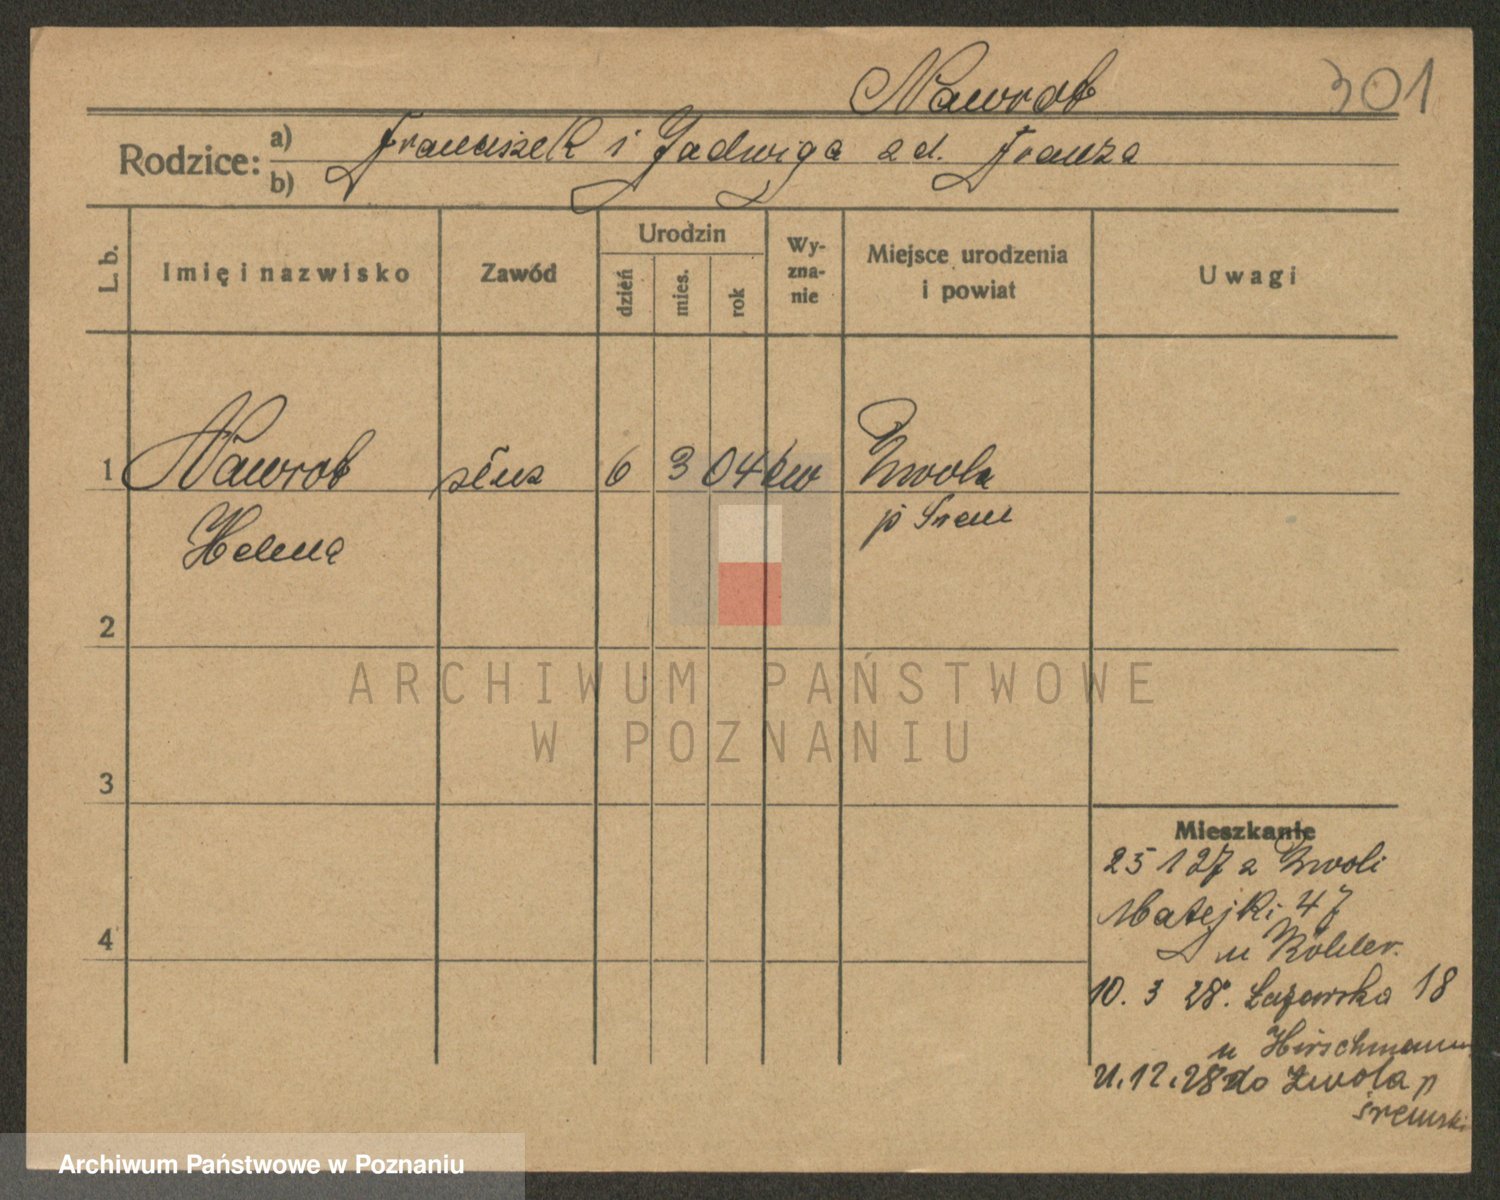 Nawrot
301
Rodzice: a) Franciszek i Jadwiga z d. Franza
b)
L. b. Imię i nazwisko Zawód Urodzin dzień mies. rok Wyznanie Miejsce urodzenia i powiat Uwagi
1 Nawrot służ 6 3 04 kw Zwola
Helena p Śrem
2
3
4
Mieszkanie
25 1 27 z Zwoli
Matejki 47
u Köhler.
10. 3 28. Łazarska 18
u Hirschmann
21.12.28 do Zwola p
śremski
ARCHIWUM PAŃSTWOWE
W POZNANIU
Archiwum Państwowe w Poznaniu